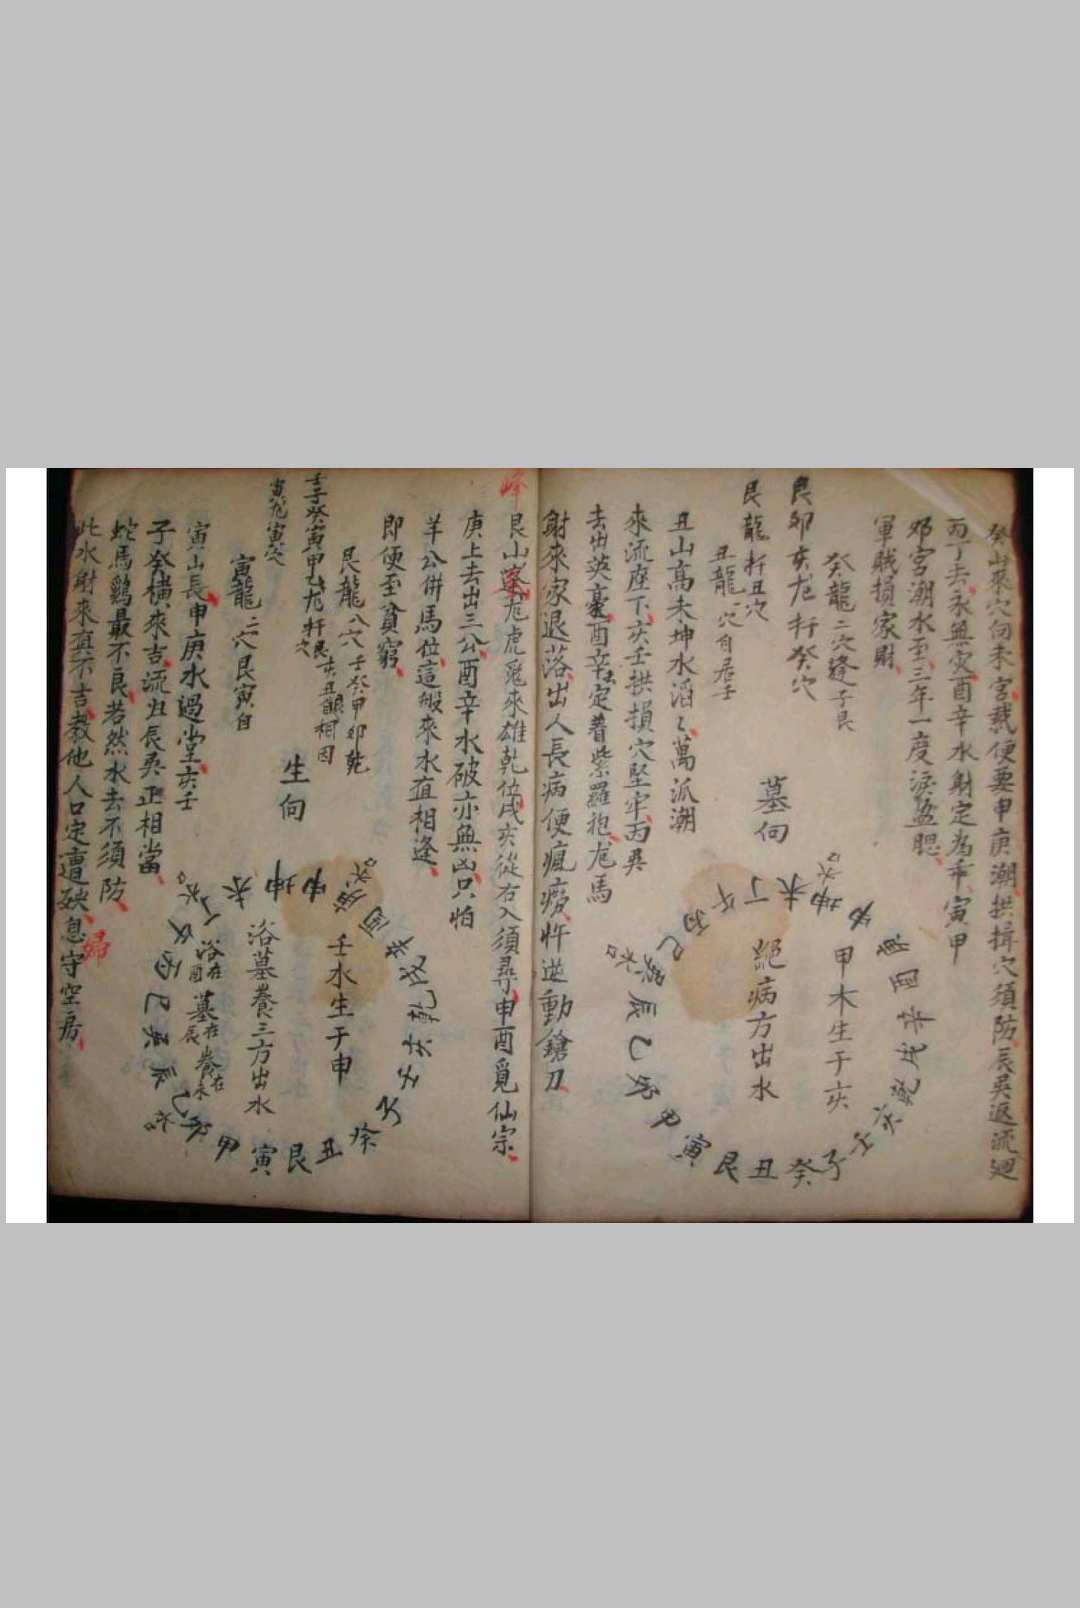 癸山來穴向未宮裁便要申庚潮拱揖穴須防辰巽返流廻
丙丁去永無灾酉辛水射定為乖寅甲
邓宮潮水至三年一度淚盈腮
軍賊損家財
癸龍二穴逢子艮
艮卯亥龙扦癸穴
艮龍扦丑穴
丑龍一穴自居子
墓向
甲木生于亥
絕病方出水
丑山高未坤水滔々萬派潮
來流座下亥壬拱損穴堅牢丙巽
去出英豪酉辛去定着紫羅袍龙馬
射來家退落出人長病便瘋癆忤逆動鎗刀
艮山龙虎兎來雄乾位戌亥從右入須尋申酉覓仙宗
峰
庚上去出三公酉辛水破亦無凶只怕
羊公併馬位這般來水直相逢
即便至貧窮
艮龍八穴壬癸甲卯乾
亥丑艮相因
壬子癸寅甲乙龙扦艮穴
寅龙寅穴
寅龍二穴艮寅自
生向
壬水生于申
浴墓養三方出水
浴在酉墓在辰養在未
寅山長申庚水過堂亥壬
子癸橫來吉流出辰巽正相當
蛇馬鷄最不良若然水去不須防
此水射來真不吉教他人口定遭殃息守空房
婦